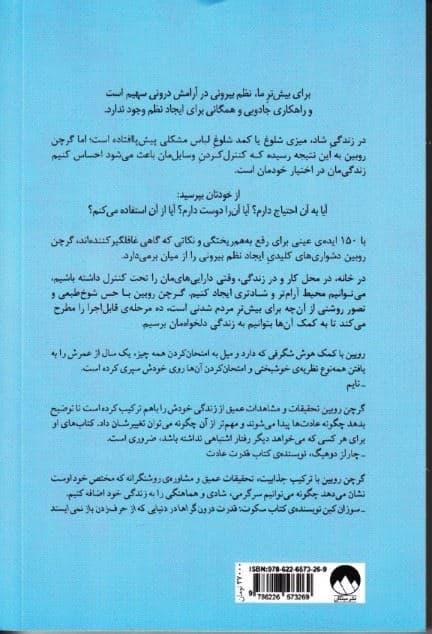 برای بیش‌ترِ ما، نظم بیرونی در آرامش درونی سهیم است
و راهکاری جادویی و همگانی برای ایجاد نظم وجود ندارد.
در زندگیِ شاد، میزی شلوغ یا کمد شلوغِ لباس مشکلی پیش‌پاافتاده است؛ اما گرچن
روبین به این نتیجه رسیده که کنترل‌کردنِ وسایل‌مان باعث می‌شود احساس کنیم
زندگی‌مان در اختیار خودمان است.
از خودتان بپرسید:
آیا به آن احتیاج دارم؟ آیا آن‌را دوست دارم؟ آیا از آن استفاده می‌کنم؟
با ۱۵۰ ایده‌ی عینی برای رفع به‌هم‌ریختگی و نکاتی که گاهی غافلگیرکننده‌اند، گرچن
روبین دشواری‌های کلیدیِ ایجاد نظم بیرونی را از میان برمی‌دارد.
در خانه، در محل کار و در زندگی، وقتی دارایی‌های‌مان را تحت کنترل داشته باشیم،
می‌توانیم محیط آرام‌تر و شادتری ایجاد کنیم. گرچن روبین با حس شوخ‌طبعی و
تصور روشنی از آن‌چه برای بیش‌تر مردم شدنی است، ده مرحله‌ی قابل‌اجرا را مطرح
می‌کند تا به کمک آن‌ها بتوانیم به زندگی دلخواه‌مان برسیم.
روبین با کمک هوش شگرفی که دارد و میل به امتحان‌کردن همه چیز، یک سال از عمرش را به
یافتن همه‌نوع نظریه‌ی خوشبختی و امتحان‌کردن آن‌ها روی خودش سپری کرده است.
ـ تایم
گرچن روبین تحقیقات و مشاهدات عمیق از زندگی خودش را باهم ترکیب کرده است تا توضیح
بدهد چگونه عادت‌ها پیدا می‌شوند و مهم‌تر از آن چگونه می‌توان تغییرشان داد. کتاب‌های او
برای هر کسی که می‌خواهد دیگر رفتار اشتباهی نداشته باشد، ضروری است.
ـ چارلز دوهیگ، نویسنده‌ی کتاب قدرت عادت
گرچن روبین با ترکیب جذابیت، تحقیقات عمیق و مشاوره‌ی روشنگرانه که مختص خود اوست
نشان می‌دهد چگونه می‌توانیم سرگرمی، شادی و هماهنگی را به زندگی خود اضافه کنیم.
ـ سوزان کین نویسنده‌ی کتاب سکوت: قدرت درون‌گراها در دنیایی که از حرف‌زدن باز نمی‌ایستد
ISBN:978-622-6573-26-9
۳۷۰۰۰ تومان
9 786226 573269
نشر میلکان